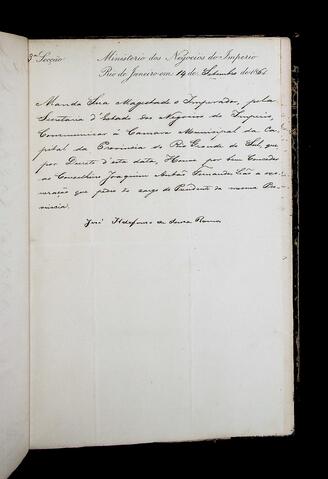 3ª Secção Ministerio dos Negocios do Imperio
Rio de Janeiro em 14 de Setembro de 1861
Manda Sua Magestade o Imperador, pela
Secretaria d'Estado dos Negocios do Imperio,
Communicar á Camara Municipal da Ca-
pital da Provincia do Rio Grande do Sul, que
por Decreto d'esta data, Houve por bem Conceder
ao Conselheiro Joaquim Antão Fernandes Leão a exo-
neração que pedio do cargo de Presidente da mesma Pro-
vincia.
José Ildefonso de Souza Ramos